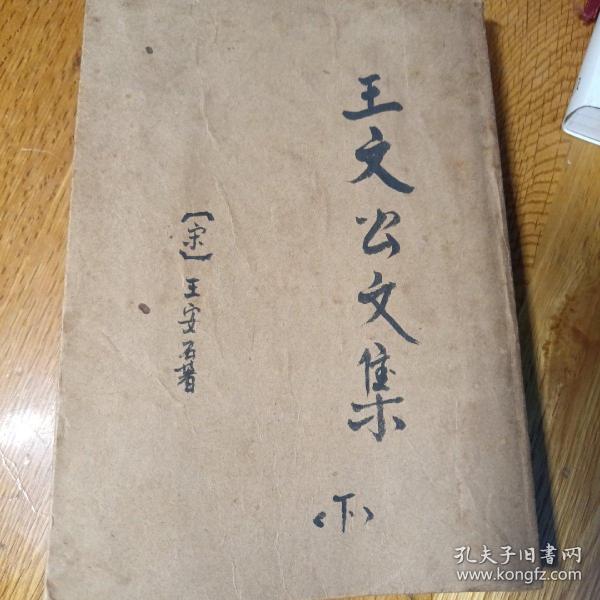 王文公文集
〈下〉
【宋】王安石著
孔夫子旧书网
www.kongfz.com